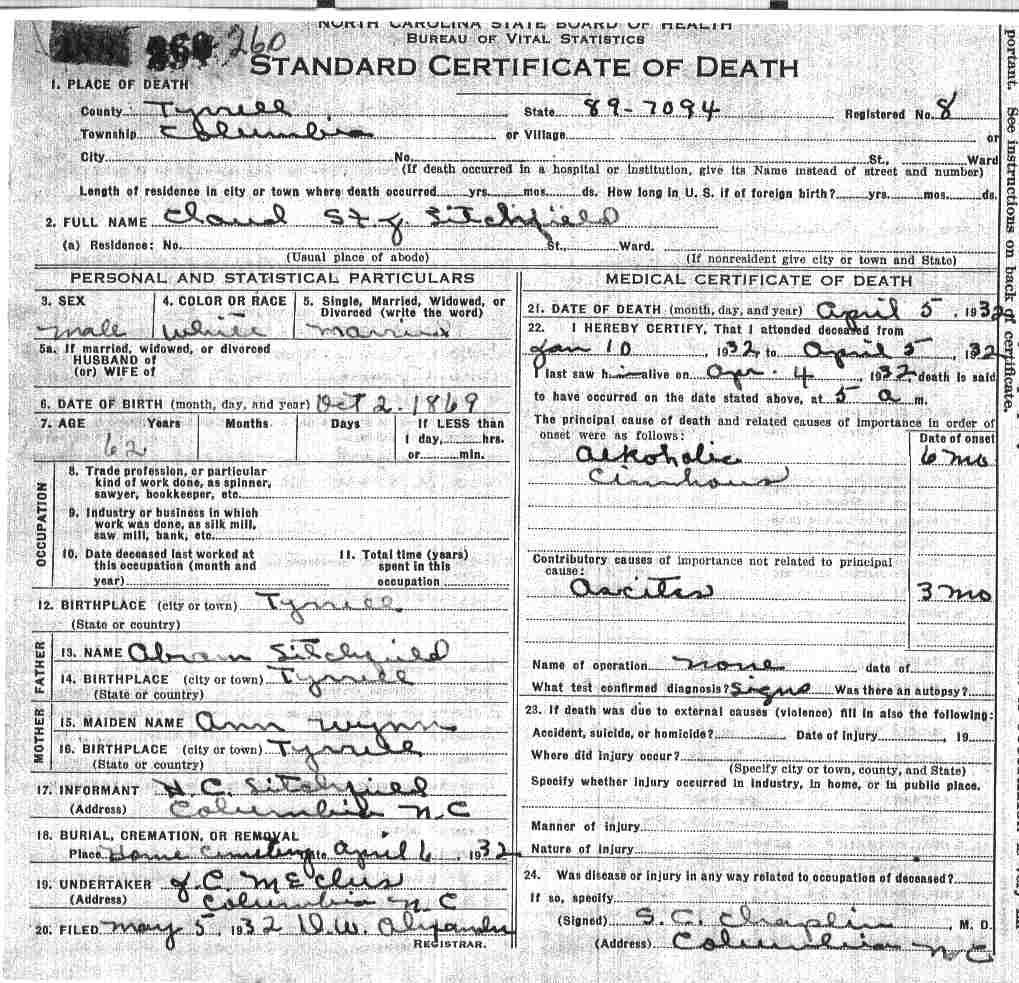 NORTH CAROLINA STATE BOARD OF HEALTH
BUREAU OF VITAL STATISTICS
260
STANDARD CERTIFICATE OF DEATH
1. PLACE OF DEATH
County Tyrrell State 89-7094 Registered No. 8
Township Columbia or Village or
City No. St., Ward
(If death occurred in a hospital or institution, give its Name instead of street and number)
Length of residence in city or town where death occurred yrs. mos. ds. How long in U. S. if of foreign birth? yrs. mos. ds.
2. FULL NAME Claud St. J. Sitchfield
(a) Residence: No. St., Ward.
(Usual place of abode) (If nonresident give city or town and State)
PERSONAL AND STATISTICAL PARTICULARS
3. SEX 4. COLOR OR RACE 5. Single, Married, Widowed, or
Divorced (write the word)
male White Married
5a. If married, widowed, or divorced
HUSBAND of
(or) WIFE of
6. DATE OF BIRTH (month, day, and year) Oct 2. 1869
7. AGE Years Months Days If LESS than
62 1 day, hrs.
or min.
OCCUPATION
8. Trade profession, or particular
kind of work done, as spinner,
sawyer, bookkeeper, etc.
9. Industry or business in which
work was done, as silk mill,
saw mill, bank, etc.
10. Date deceased last worked at 11. Total time (years)
this occupation (month and spent in this
year) occupation
12. BIRTHPLACE (city or town) Tyrrell
(State or country)
FATHER
13. NAME Abram Sitchfield
14. BIRTHPLACE (city or town) Tyrrell
(State or country)
MOTHER
15. MAIDEN NAME Ann Wynn
16. BIRTHPLACE (city or town) Tyrrell
(State or country)
17. INFORMANT H. C. Sitchfield
(Address) Columbia N.C
18. BURIAL, CREMATION, OR REMOVAL
Place Home April 6, 1932
19. UNDERTAKER J. C. McClus
(Address) Columbia N.C
20. FILED may 5, 1932 Alexander
REGISTRAR.
MEDICAL CERTIFICATE OF DEATH
21. DATE OF DEATH (month, day, and year) April 5, 1932
22. I HEREBY CERTIFY, That I attended deceased from
Jan 10, 1932, to April 5, 32
I last saw him alive on Apr. 4, 1932, death is said
to have occurred on the date stated above, at 5 a m.
The principal cause of death and related causes of importance in order of
onset were as follows: Date of onset
Alkoholic 6 mo
Cirrhous
Contributory causes of importance not related to principal
cause:
Ascites 3 mo
Name of operation none date of
What test confirmed diagnosis? Signs Was there an autopsy?
23. If death was due to external causes (violence) fill in also the following:
Accident, suicide, or homicide? Date of injury , 19
Where did injury occur?
(Specify city or town, county, and State)
Specify whether injury occurred in industry, in home, or in public place.
Manner of injury
Nature of injury
24. Was disease or injury in any way related to occupation of deceased?
If so, specify
(Signed) S. C. Chaplin, M. D.
(Address) Columbia N C
portant. See instructions on back of certificate.